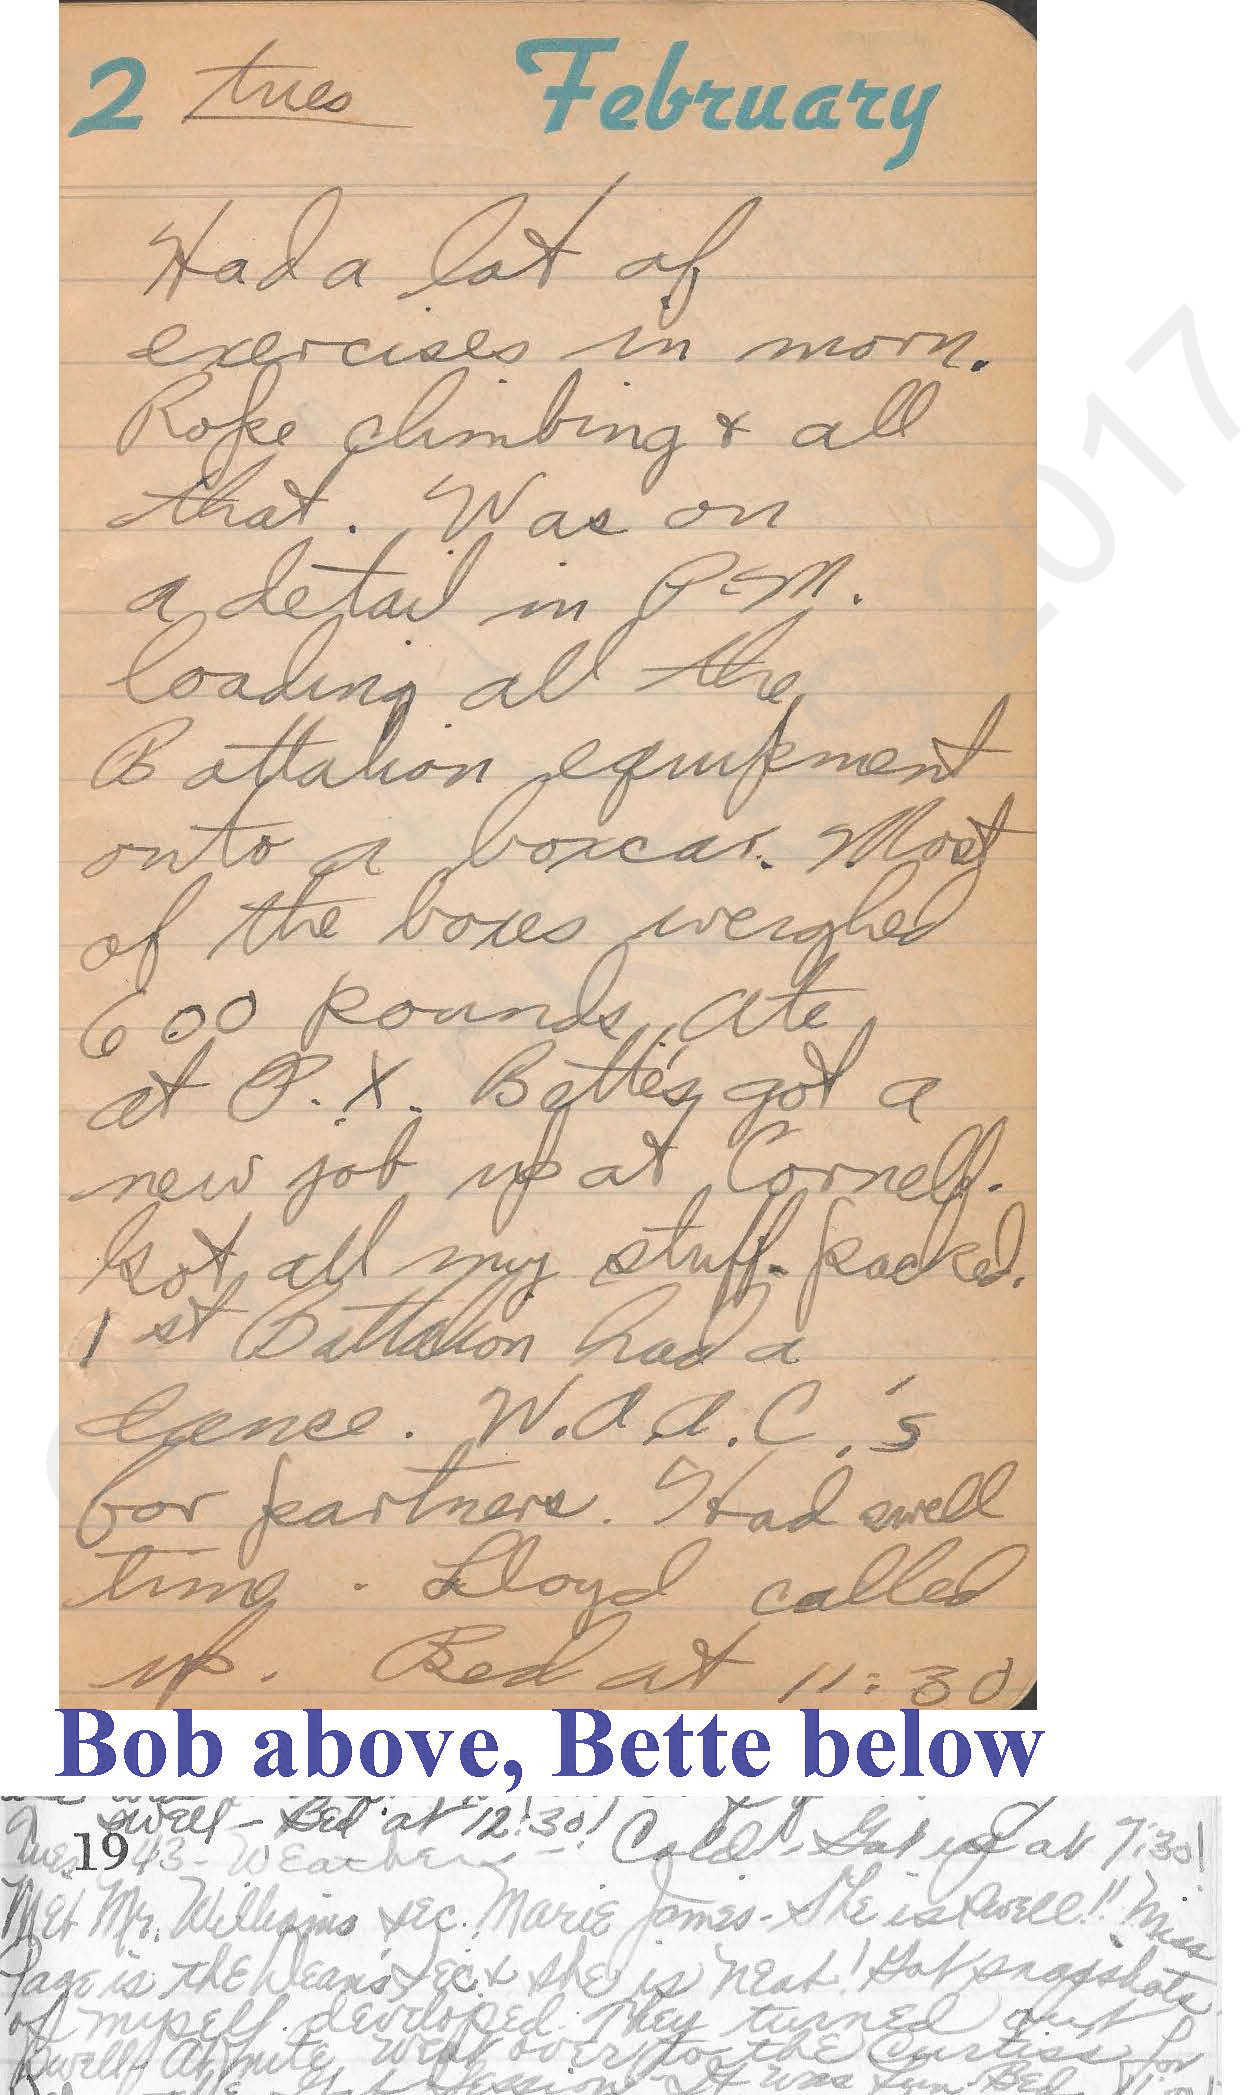 2 tues February
Had a lot of
exercises in morn.
Rope climbing & all
that. Was on
a detail in P.M.
loading all the
Battalion equipment
onto a boxcar. Most
of the boxes weighed
600 pounds. Ate
at P.X. Bette's got a
new job up at Cornell.
Got all my stuff packed.
1st Battalion had a
dance. W.A.A.C.'s
for partners. Had swell
time. Lloyd called
up. Bed at 11:30
Bob above, Bette below
swell - Bed at 12:30!
Tues. 1943 - Weather - Cold - Got up at 7:30!
Met Mr. Williams sec. Marie James - She is swell!! Miss
Page is the Deans sec & she is neat! Got snapshots
of myself developed. They turned out
swell - At nite went over to the Curtiss for
Session - It was fun - Bed
2017